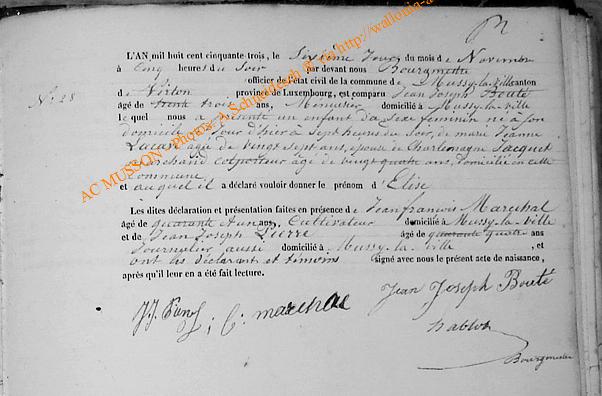 N.° 28
L'AN mil huit cent cinquante trois, le Sixième Jour du mois de Novembre
à Cinq heures du Soir par devant nous Bourgmestre
officier de l'état civil de la commune de Mussy-la-Ville canton
de Virton, province de Luxembourg, est comparu Jean Joseph Bouté
âgé de trente trois ans, Menuisier domicilié à Mussy-la-Ville
lequel nous a présenté un enfant du Sexe feminin né à son
domicile au Jour d'hier à Sept heures du Soir, de marie Jeanne
Lucas âgée de vingt sept ans, épouse de Charlemagne Jacquet
marchand colporteur âgé de vingt quatre ans, Domicilié en cette
Commune,
et auquel il a déclaré vouloir donner le prénom d'Elise
Les dites déclaration et présentation faites en présence de Jean françois Maréchal
âgé de quarante Un ans, Cultivateur domicilié à Mussy-la-Ville
et de Jean Joseph Pierre âgé de quarante quatre ans
Journalier aussi domicilié à Mussy-la-Ville, et
ont les déclarant et témoins signé avec nous le présent acte de naissance,
après qu'il leur en a été fait lecture.
Jean Joseph Bouté
marechal
Bourgmestre
AC MUSSON - photos A Schneidesch et da http://wallonia-a